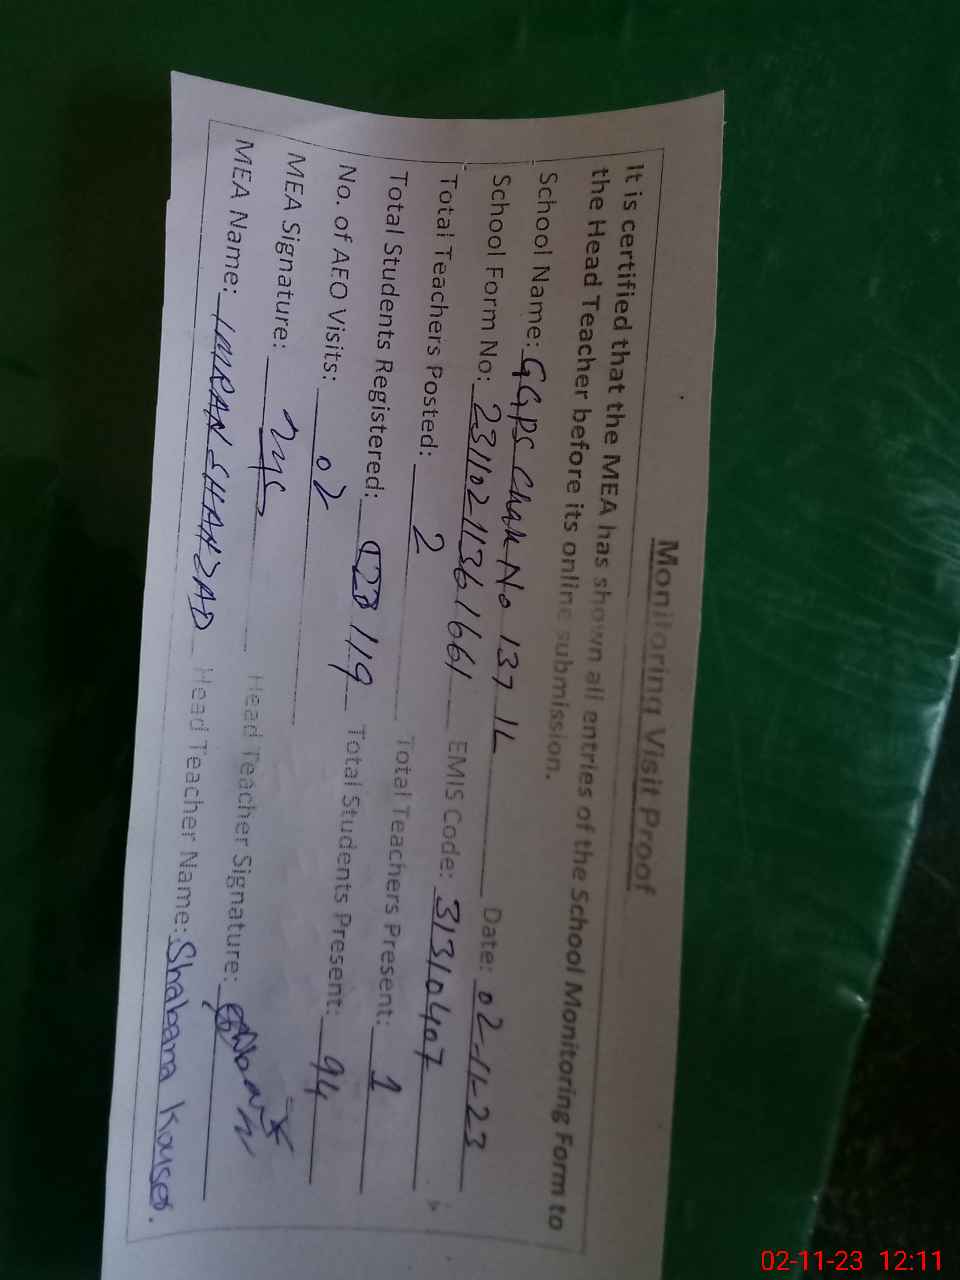 Monitoring Visit Proof
It is certified that the MEA has shown all entries of the School Monitoring Form to
the Head Teacher before its online submission.
School Name: GGPS Chak No 137 1L Date: 02-11-23
School Form No: 23110211361661 EMIS Code: 31310407
Total Teachers Posted: 2 Total Teachers Present: 1
Total Students Registered: 119 Total Students Present: 94
No. of AEO Visits: 02
MEA Signature: Head Teacher Signature:
MEA Name: IMRAN SHAHZAD Head Teacher Name: Shabana Kouser.
02-11-23 12:11